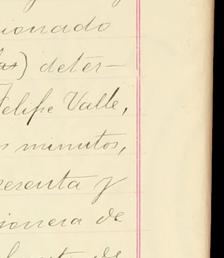 ionado
as) deter-
Felipe Valle,
s minutos,
resenta y
ionera de
de